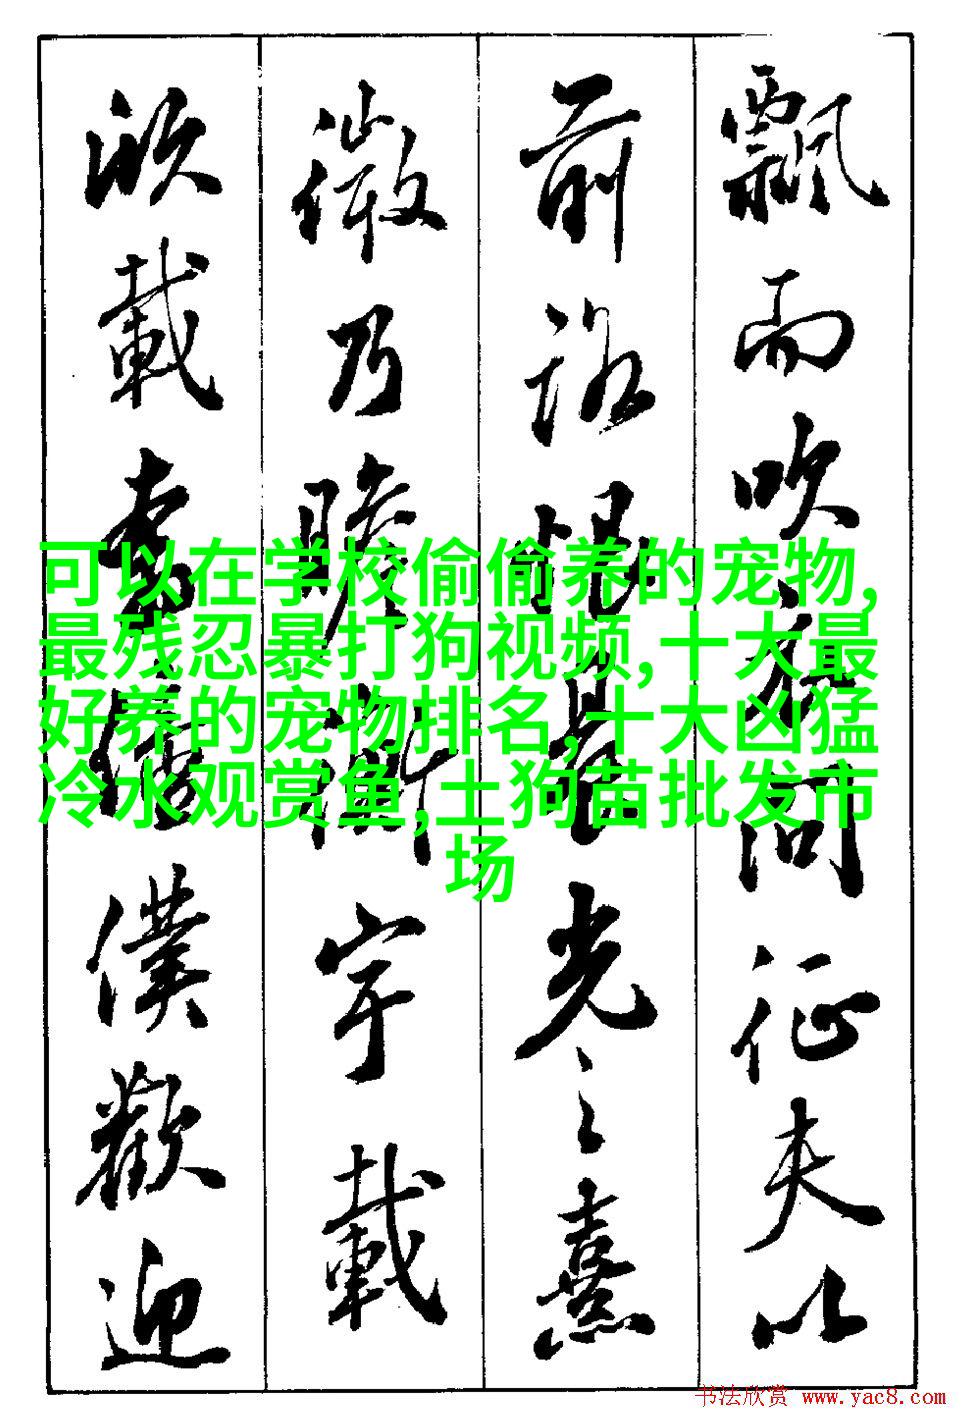 飄而吹衣問征夫以
前路恨晨光之熹
微乃瞻衡宇載
欣載奔僮僕歡迎
可以在学校偷偷养的宠物,
最残忍暴打狗视频,十大最
好养的宠物排名,十大凶猛
冷水观赏鱼,土狗苗批发市
场
书法欣赏 www.yac8.com